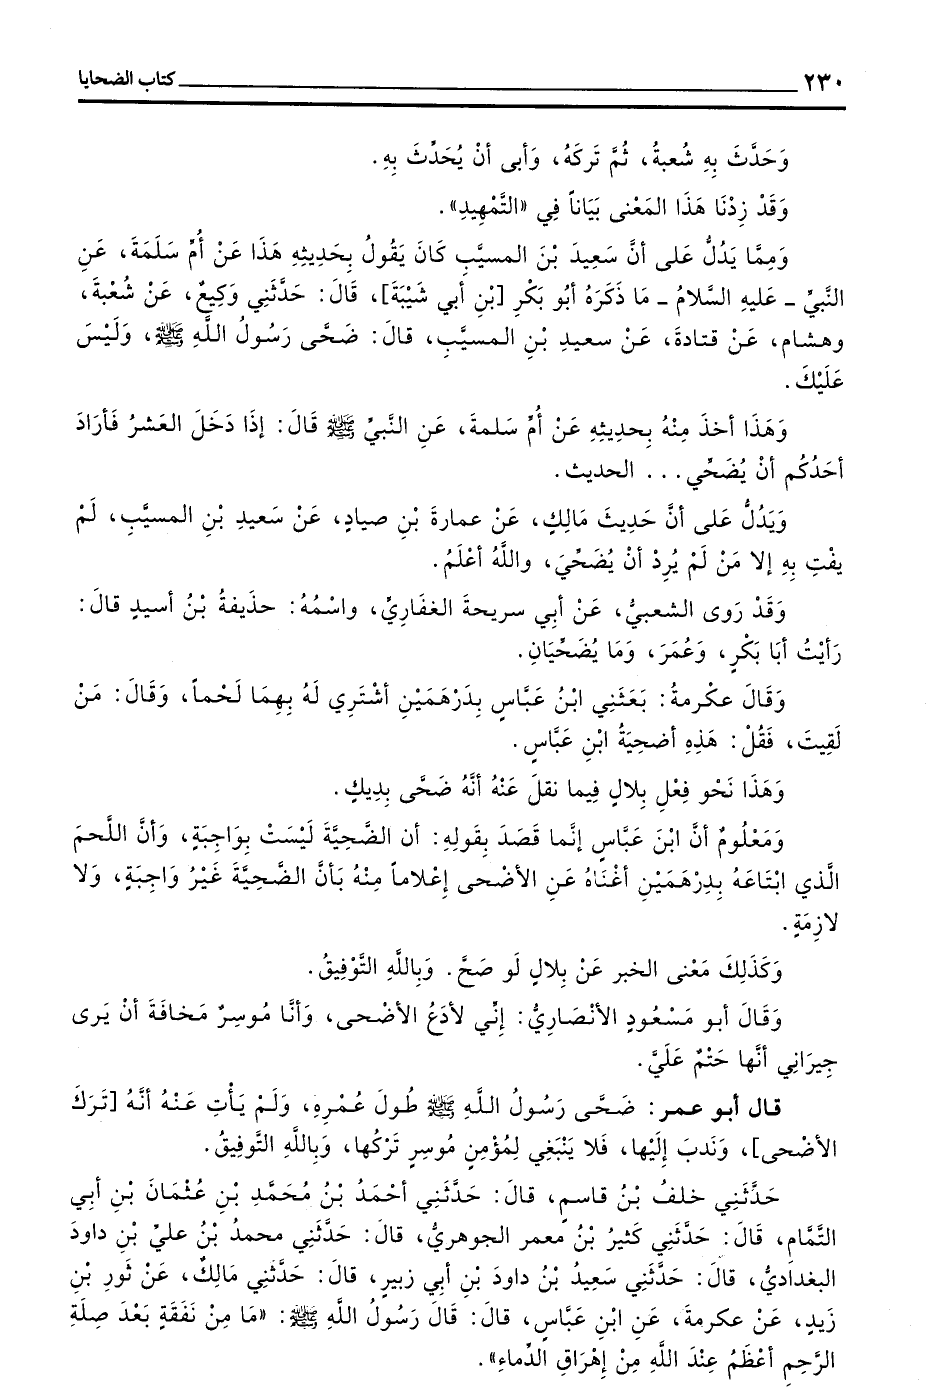 ٢٣٠ كتاب الضحايا
وَحَدَّثَ بِهِ شُعبةُ، ثُمَّ تَركَهُ، وَأبى أنْ يُحَدِّثَ بِهِ.
وَقَدْ زِدْنَا هَذَا المَعْنى بَيَاناً فِي «التَّمْهِيدِ».
وَمِمَّا يَدُلُّ عَلى أنَّ سَعِيدَ بْنَ المسيَّبِ كَانَ يَقُولُ بِحَدِيثِهِ هَذَا عَنْ أُمِّ سَلَمَةَ، عَنِ
النَّبيِّ ـ عَليهِ السَّلامُ ـ مَا ذَكَرَهُ أبُو بَكْرِ [بْنِ أبي شَيْبَةَ]، قَالَ: حَدَّثَنِي وَكِيعٌ، عَنْ شُعْبةَ،
وهشام، عَنْ قتادةَ، عَنْ سعيدِ بْنِ المسيَّبِ، قالَ: ضَحَّى رَسُولُ اللَّهِ ﷺ، وَلَيْسَ
عَلَيْكَ.
وَهَذَا أخذَ مِنْهُ بِحديثِهِ عَنْ أُمِّ سَلمةَ، عَنِ النَّبيِّ ﷺ قَالَ: إذَا دَخَلَ العَشرُ فَأرَادَ
أحَدُكُم أنْ يُضَحِّي... الحديث.
وَيَدُلُّ عَلى أنَّ حَدِيثَ مَالِكٍ، عَنْ عمارةَ بْنِ صيادٍ، عَنْ سَعيدِ بْنِ المسيَّبِ، لَمْ
يفْتِ بِهِ إلا مَنْ لَمْ يُردْ أنْ يُضَحِّيَ، واللَّهُ أعْلَمُ.
وَقَدْ رَوى الشعبيُّ، عَنْ أبِي سريحةَ الغفَاريِّ، واسْمُهُ: حذَيفةُ بْنُ أسيدٍ قالَ:
رَأيْتُ أبَا بَكْرٍ، وَعُمَرَ، وَمَا يُضَحِّيَانِ.
وَقَالَ عكْرمةُ: بَعَثَنِي ابْنُ عَبَّاسٍ بِدَرْهَمَيْنِ أشْتَرِي لَهُ بِهِمَا لَحْماً، وَقَالَ: مَنْ
لَقِيتَ، فَقُلْ: هَذِهِ أضحِيَةُ ابْنِ عَبَّاسٍ.
وَهَذَا نَحْو فِعْلِ بِلالٍ فِيما نقلَ عَنْهُ أنَّهُ ضَحَّى بِدِيكٍ.
وَمَعْلُومٌ أنَّ ابْنَ عَبَّاسٍ إنَّما قَصَدَ بِقَولِهِ: أن الضَّحِيَّةَ لَيْسَتْ بِوَاجِبَةٍ، وَأنَّ اللَّحمَ
الَّذي ابْتَاعَهُ بِدِرْهَمَيْنِ أغْنَاهُ عَنِ الأضْحى إعْلاماً مِنْهُ بَأنَّ الضَّحِيَّةَ غَيْرُ وَاجِبَةٍ، وَلا
لازِمَةٍ.
وَكَذَلِكَ مَعْنى الخبر عَنْ بِلالٍ لَو صَحَّ. وَبِاللَّهِ التَّوْفِيقُ.
وَقَالَ أبو مَسْعُودٍ الأنْصَاريُّ: إنِّي لأدَعُ الأضْحى، وَأنَا مُوسِرٌ مَخافَةَ أنْ يَرى
جِيرَانِي أنَّها حَتْمٌ عَلَيَّ.
قال أبو عمر: ضَحَّى رَسُولُ اللَّهِ ﷺ طُولَ عُمْرِهِ، وَلَمْ يَأْتِ عَنْهُ أنَّهُ [تَرَكَ
الأضْحى]، وَنَدبَ إلَيْها، فَلا يَنْبَغِي لِمُؤْمِنٍ مُوسِرٍ تَرْكُها، وَبِاللَّهِ التَّوفِيقُ.
حَدَّثَنِي خلفُ بْنُ قاسمٍ، قالَ: حَدَّثَنِي أحْمَدُ بْنُ مُحَمَّدِ بْنِ عُثْمَانَ بْنِ أبِي
التَّمَّامِ، قَالَ: حَدَّثَنِي كَثيرُ بْنُ معمر الجوهريُّ، قالَ: حَدَّثَنِي محمدُ بْنُ عليِّ بْنِ داودَ
البغدَاديُّ، قالَ: حَدَّثَنِي سَعِيدُ بْنُ داودَ بْنِ أبِي زبيرٍ، قالَ: حَدَّثَنِي مَالِكٌ، عَنْ ثَورِ بْنِ
زَيدٍ، عَنْ عكرمةَ، عَنِ ابْنِ عَبَّاسٍ، قالَ: قَالَ رَسُولُ اللَّهِ ﷺ: «مَا مِنْ نَفَقَةٍ بَعْدَ صِلَةِ
الرَّحِمِ أعْظَمُ عِنْدَ اللَّهِ مِنْ إهْرَاقِ الدِّماءِ».